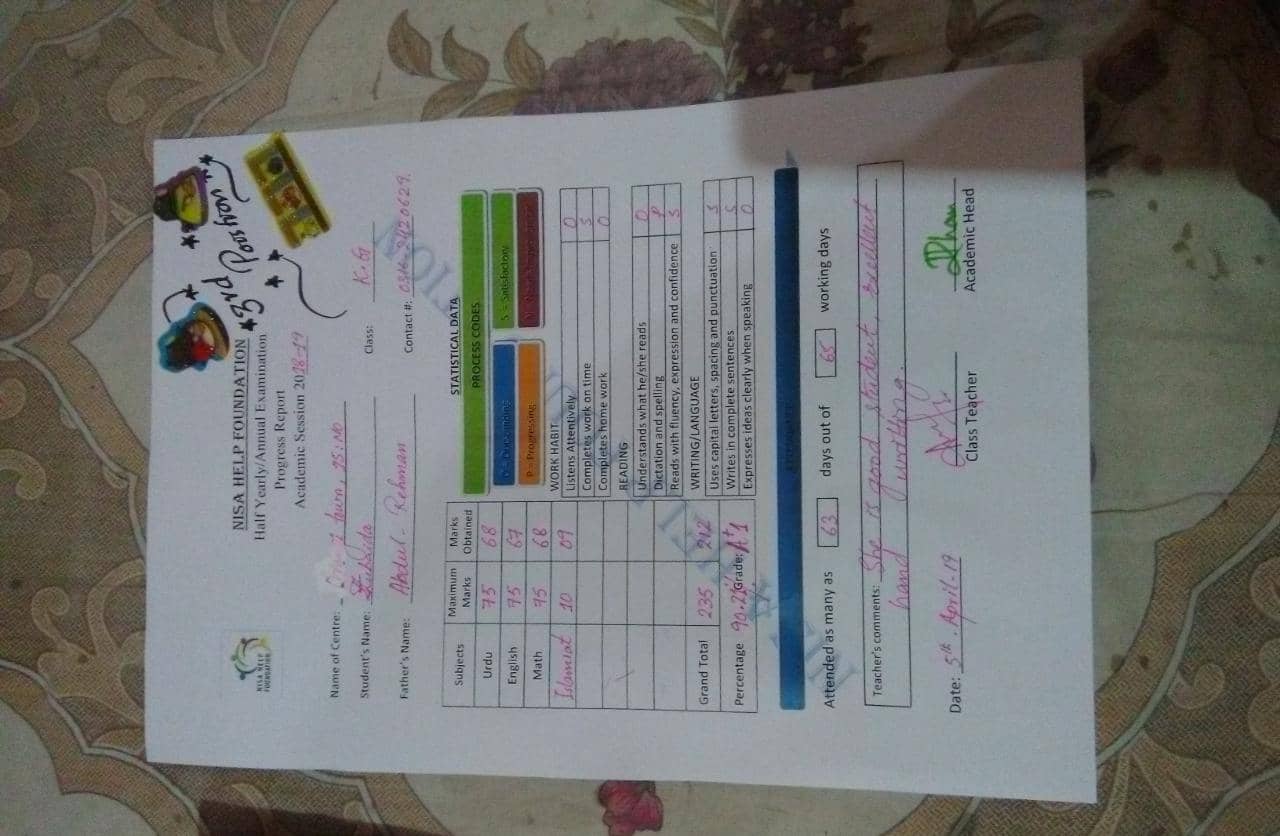 NISA HELP FOUNDATION
NISA HELP FOUNDATION
Half Yearly/Annual Examination
Progress Report
Academic Session 2018-19
3rd Position
Name of Centre:
Student's Name: Class: K.G
Father's Name: Abdul. Rehman Contact #:
Subjects Maximum Marks Marks Obtained
Urdu 75 68
English 75 67
Math 75 68
Islamiat 10 09
Grand Total 235 212
Percentage 90.2% Grade: A+1
STATISTICAL DATA
PROCESS CODES
O = Outstanding S = Satisfactory
P = Progressing
WORK HABIT
Listens Attentively O
Completes work on time S
Completes home work O
READING
Understands what he/she reads O
Dictation and spelling P
Reads with fluency, expression and confidence S
WRITING/LANGUAGE
Uses capital letters, spacing and punctuation S
Writes in complete sentences S
Expresses ideas clearly when speaking O
NISA HELP FOUNDATION
ATTENDANCE
Attended as many as 63 days out of 65 working days
Teacher's comments: She is good student, excellent
hand writting.
Date: 5th. April-19 Class Teacher Academic Head